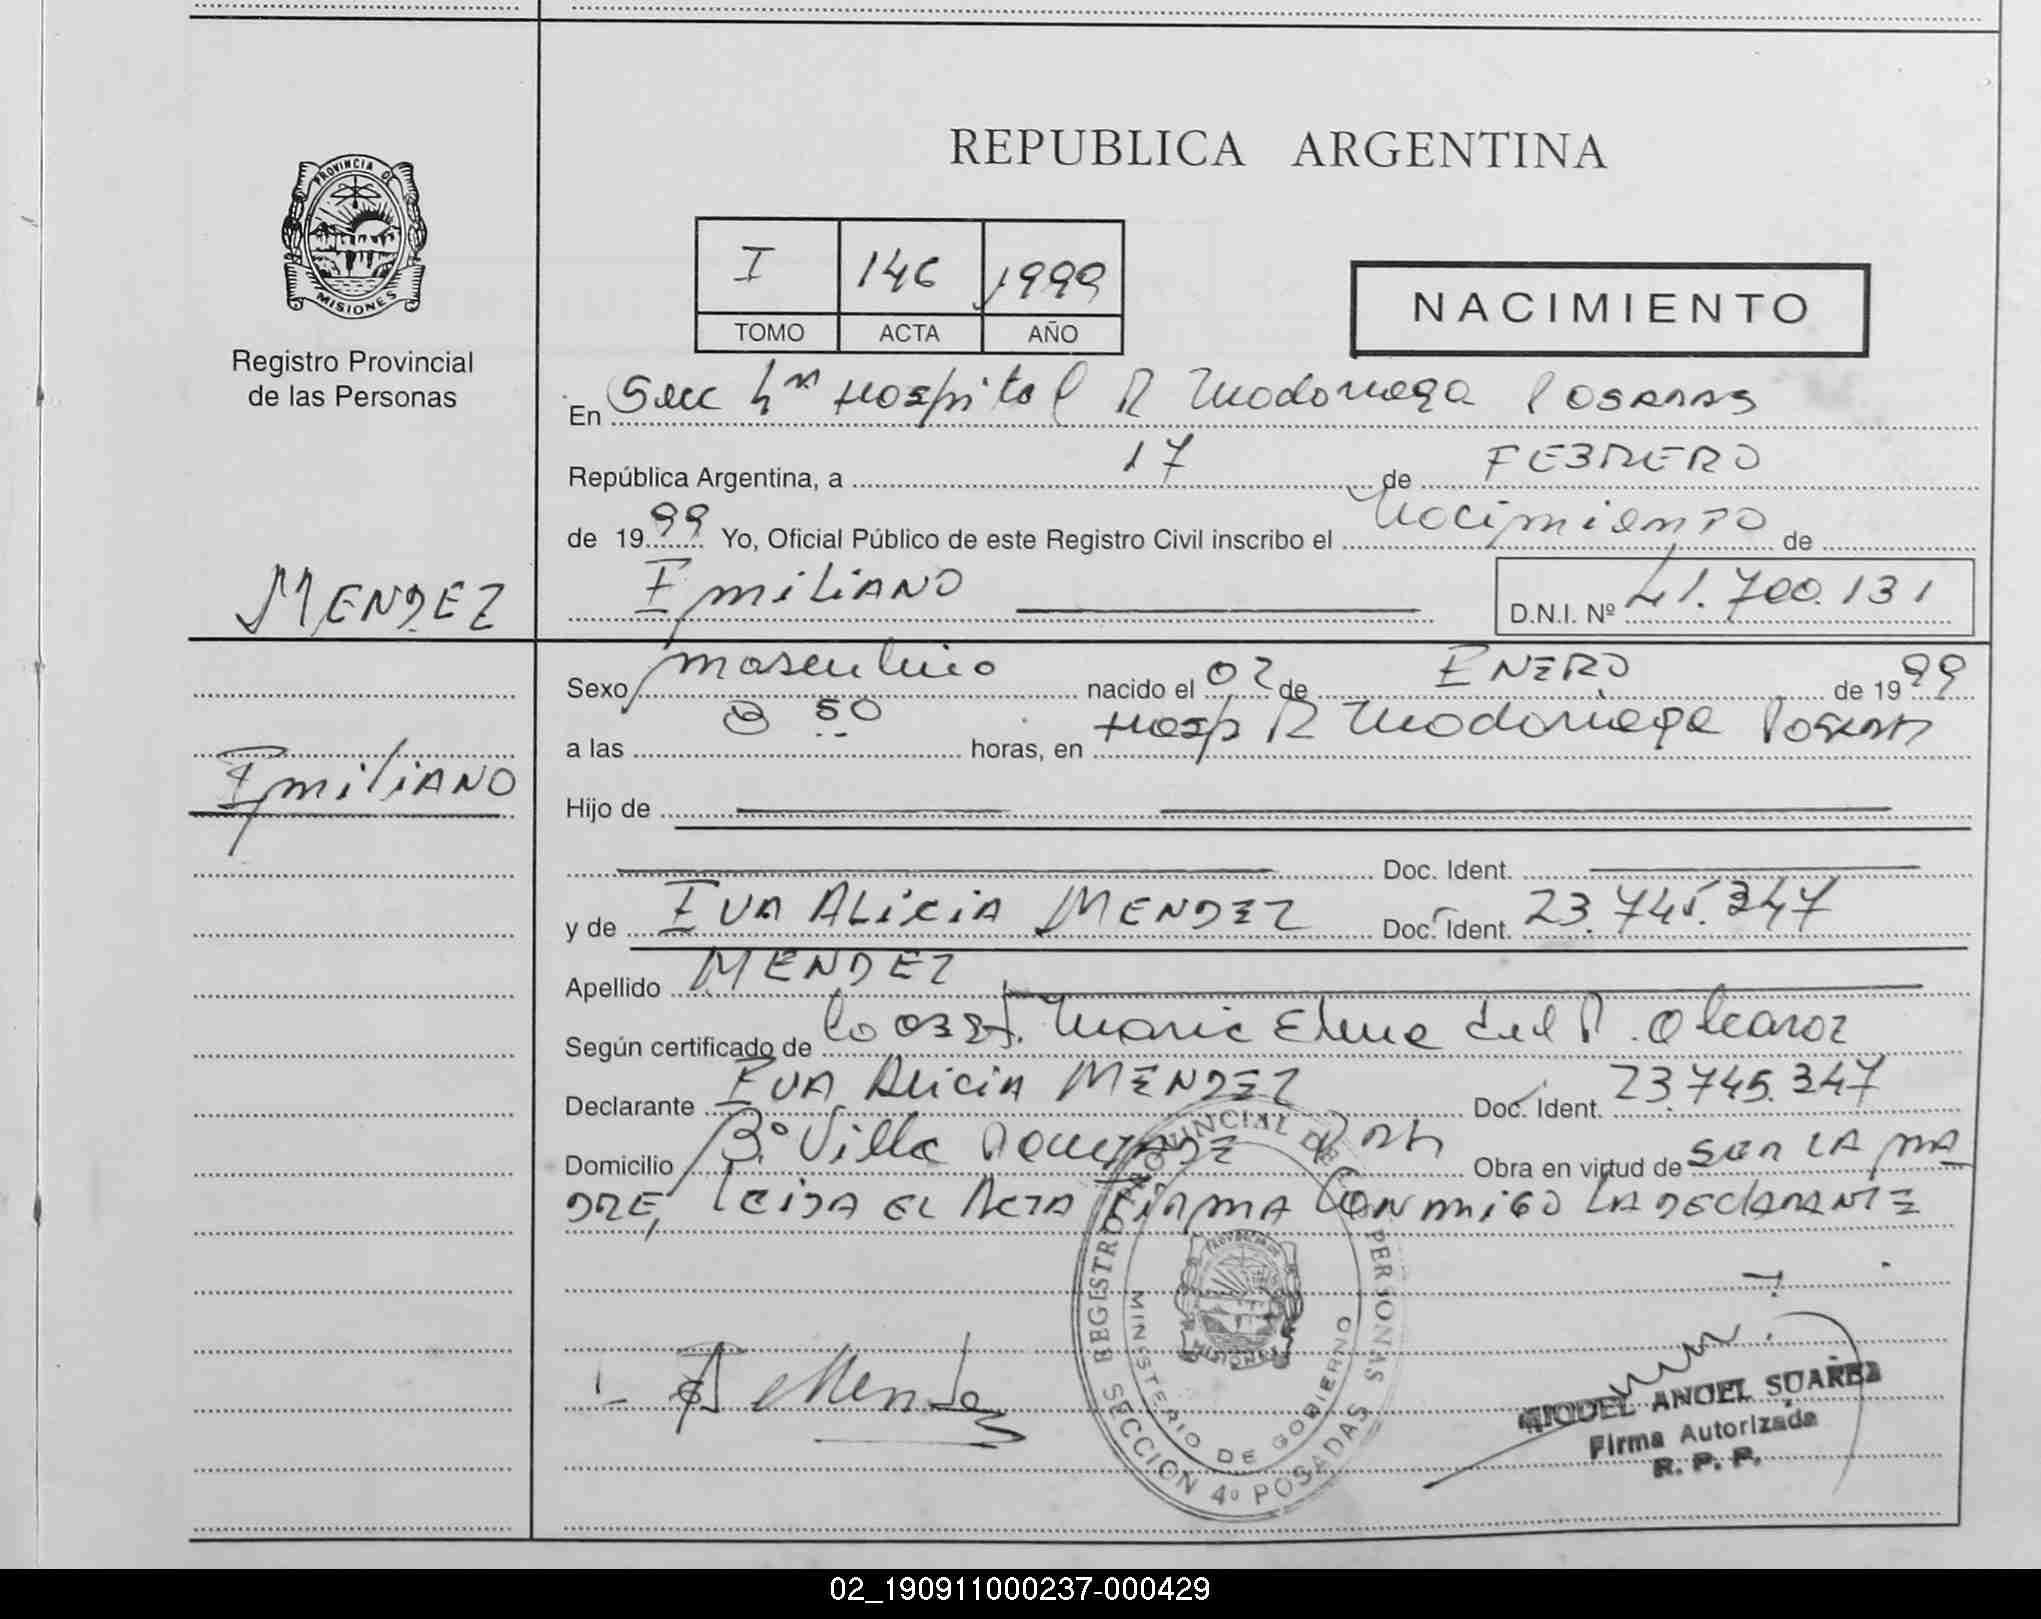 PROVINCIA DE
MISIONES
Registro Provincial
de las Personas
MENDEZ
Emiliano
REPUBLICA ARGENTINA
I 146 1999
TOMO ACTA AÑO
NACIMIENTO
En Secc 4ª Hospital R Madariaga Posadas
República Argentina, a 17 de FEBRERO
de 1999 Yo, Oficial Público de este Registro Civil inscribo el Nacimiento de
Emiliano D.N.I. Nº 41.700.131
Sexo masculino nacido el 02 de ENERO de 1999
a las 50 horas, en Hosp R Madariaga Posadas
Hijo de
Doc. Ident.
y de Eva Alicia MENDEZ Doc. Ident. 23.745.347
Apellido MENDEZ
Según certificado de la obst. Maria Elena del R. Alcaraz
Declarante Eva Alicia MENDEZ Doc. Ident. 23.745.347
Domicilio Bº Villa Obra en virtud de SER LA MA
DRE, Leida EL Acta Firma Conmigo LA DECLARANTE
REGISTRO PROVINCIAL DE PERSONAS
MINISTERIO DE GOBIERNO
SECCION 4º POSADAS
MISIONES
E Mendez
MIGUEL ANGEL SUAREZ
Firma Autorizada
R. P. P.
02_190911000237-000429